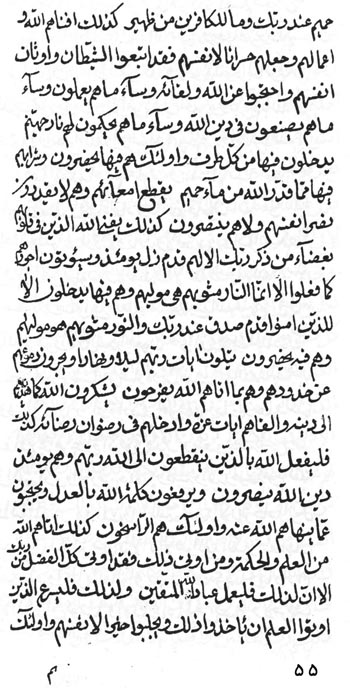 حميم عند ربك وما للكافرين من ظهير كذلك افناهم الله و
اعمالهم وجعلهم حسرانا لانفسهم فقد اتبعوا الشيطان واوثان
انفسهم واحتجبوا عن الله ولقائه وساء ما هم يعملون وساء
ما هم يصنعون في دين الله وساء ما هم يحكمون لهم نار جهنم
يدخلون فيها من كل طرف واولئك هم فيها يحضرون
فيها مما قدر الله من ماء حميم يقطع امعائهم وهم لا يقدرون
بنصر انفسهم ولا هم ينصرون كذلك الله الذين في قلوبهم
بغضاء من ذكر ربك الا لهم قدم زل يومئذ وسيؤتون اجورهم
كما فعلوا الا انما النار مثويهم هي موليهم وهم فيها يدخلون الا
للذين امنوا قدم صدق عند ربك والنور مثويهم هو موليهم
وهم فيه يحضرون يتلون ايات ربهم ليلا ونهارا
عن خدودهم وهم بما اتاهم الله يفرحون يشكرون الله كما هديهم
الى دينه والقاهم ايات عزه وادخلهم في رضوان رضائه كذلك
فليفعل الله بالذين ينقطعون الى الله ربهم وهم يومئذ
دين الله ينصرون ويرفعون كلمة الله بالعدل ويحتجبون
عما ينهاهم الله عنه واولئك هم الراسخون كذلك اتاهم الله
من العلم والحكمة ومن اوتي ذلك فقد اوتي كل الفضل من ربك
الا ان لذلك فليعمل عباد الله المتقين ولذلك فليسرع الذين
اوتوا العلم ان ياخذوا ذلك ويجلبوا خيرا لانفسهم واولئك
۵۵